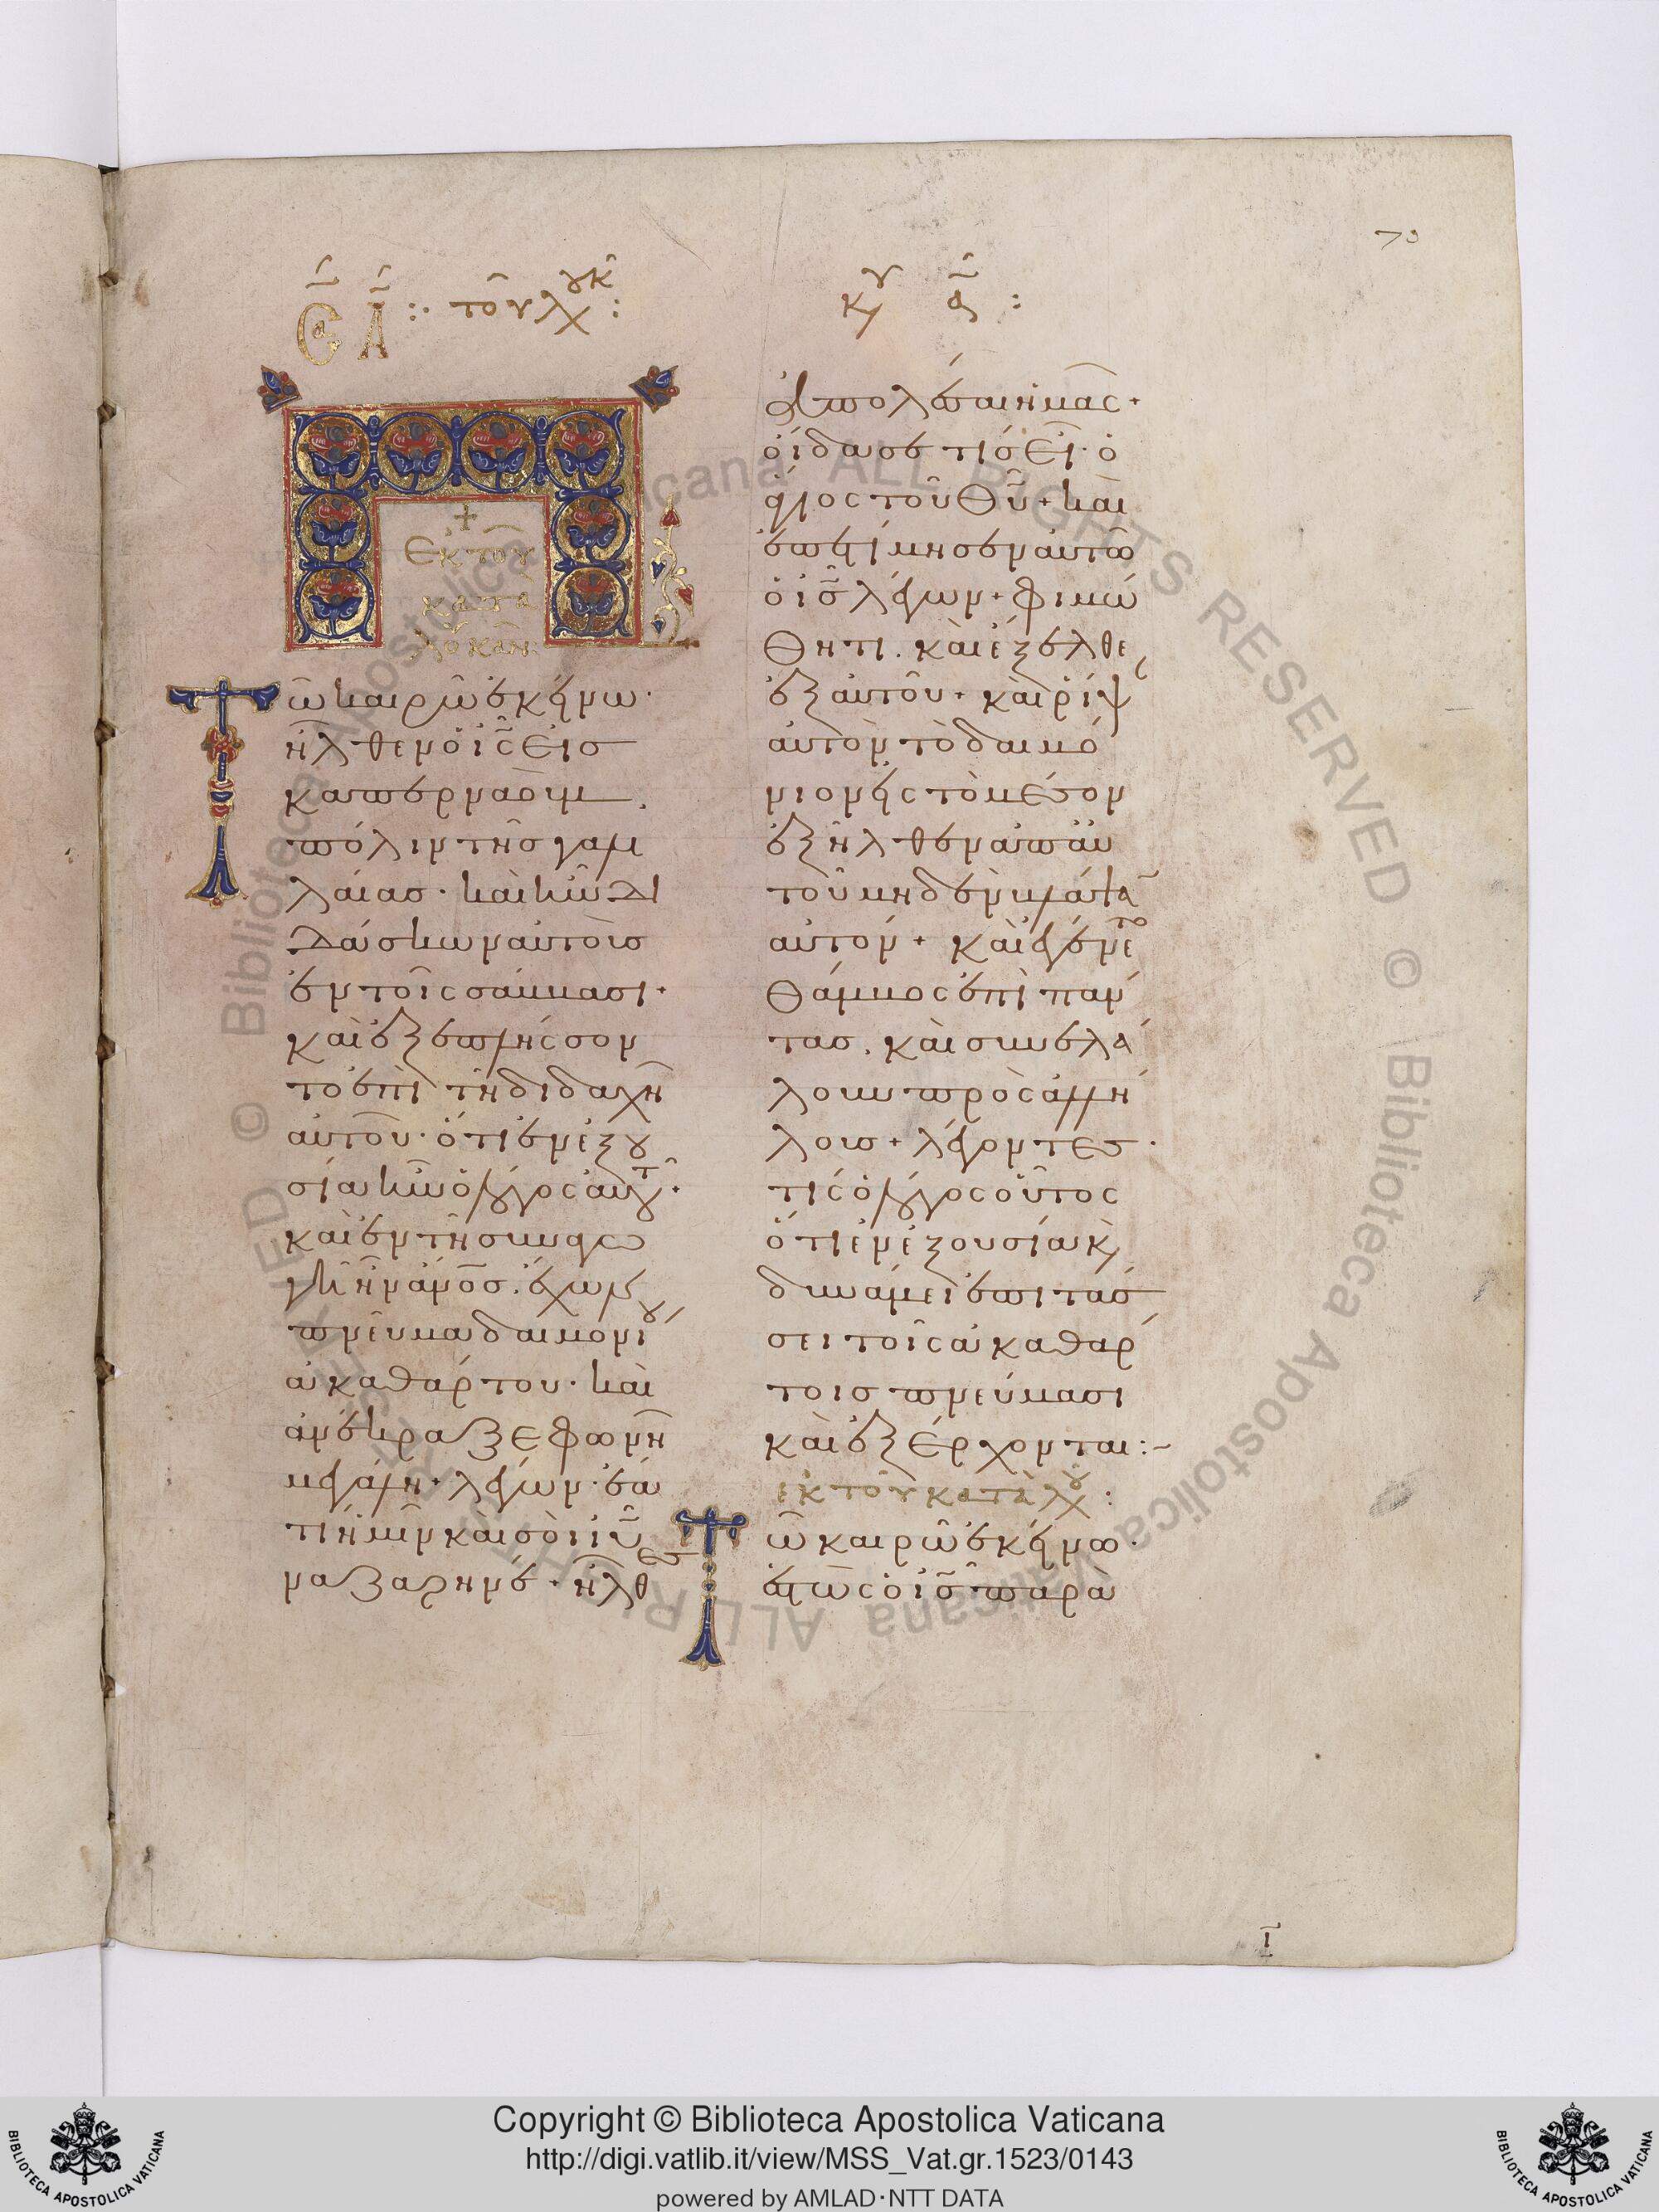 70
ϹΑ ΑΑ :· τοῦ λουκ :
κυ α :
+
Ἐκ τοῦ
κατὰ
λουκᾶν:
Τῶ καιρῶ ἐκείνω·
ἦλθεν ὁ ἰς εἰσ
καπερναοὺμ
πόλιν τῆσ γαλι
λαίασ· καὶ ἦν δι
δάσκων αὐτοὺσ
ἐν τοῖς σάββασι·
καὶ ἐξεπλήσσον
το ἐπὶ τῆ διδαχῆ
αὐτοῦ· ὅτι ἐν ἐξου
σία ἦν ὁ λόγος αὐτοῦ·
καὶ ἐν τῆ συναγω
γῆ ἦν ἄνος. ἔχων
πνεῦμα δαιμονίου
ἀκαθάρτου· καὶ
ἀνέκραξε φωνῆ
μεγάλη· λέγων· ἔα
τί ἡμῖν καὶ σοὶ ἰῦ
ναζαρηνέ· ἦλθες
ἀπολέσαι ἡμᾶς·
οἶδα σε τίς εἶ· ὁ
ἅγιος τοῦ Θῦ· καὶ
ἐπετίμησεν αὐτῶ
ὁ ἰς λέγων· φιμώ
θητι. καὶ ἔξελθε
ἐξ αὐτοῦ· καὶ ῥίψαν
αὐτὸν τὸ δαιμό
νιον εἰς τὸ μέσον
ἐξῆλθεν ἀπ αὐ
τοῦ μηδὲν βλάψαν
αὐτόν· καὶ ἐγένετο
θάμβος ἐπὶ πάν
τασ. καὶ συνελά
λουν πρὸς ἀλλή
λουσ· λέγοντεσ·
τίς ὁ λόγος οὗτος
ὅτι ἐν ἐξουσία κὶ
δυνάμει ἐπιτάσ
σει τοῖς ἀκαθάρ
τοισ πνεύμασι
καὶ ἐξέρχονται:~
ἐκ τοῦ κατὰ λου :
Τῶ καιρῶ ἐκείνω·
ἑστὼς ὁ ἰς παρὰ
ι
Copyright © Biblioteca Apostolica Vaticana
http://digi.vatlib.it/view/MSS_Vat.gr.1523/0143
powered by AMLAD·NTT DATA
BIBLIOTECA APOSTOLICA VATICANA
BIBLIOTECA APOSTOLICA VATICANA
© Biblioteca Apostolica Vaticana ALL RIGHTS RESERVED © Biblioteca Apostolica Vaticana ALL RIGHTS RESERVED